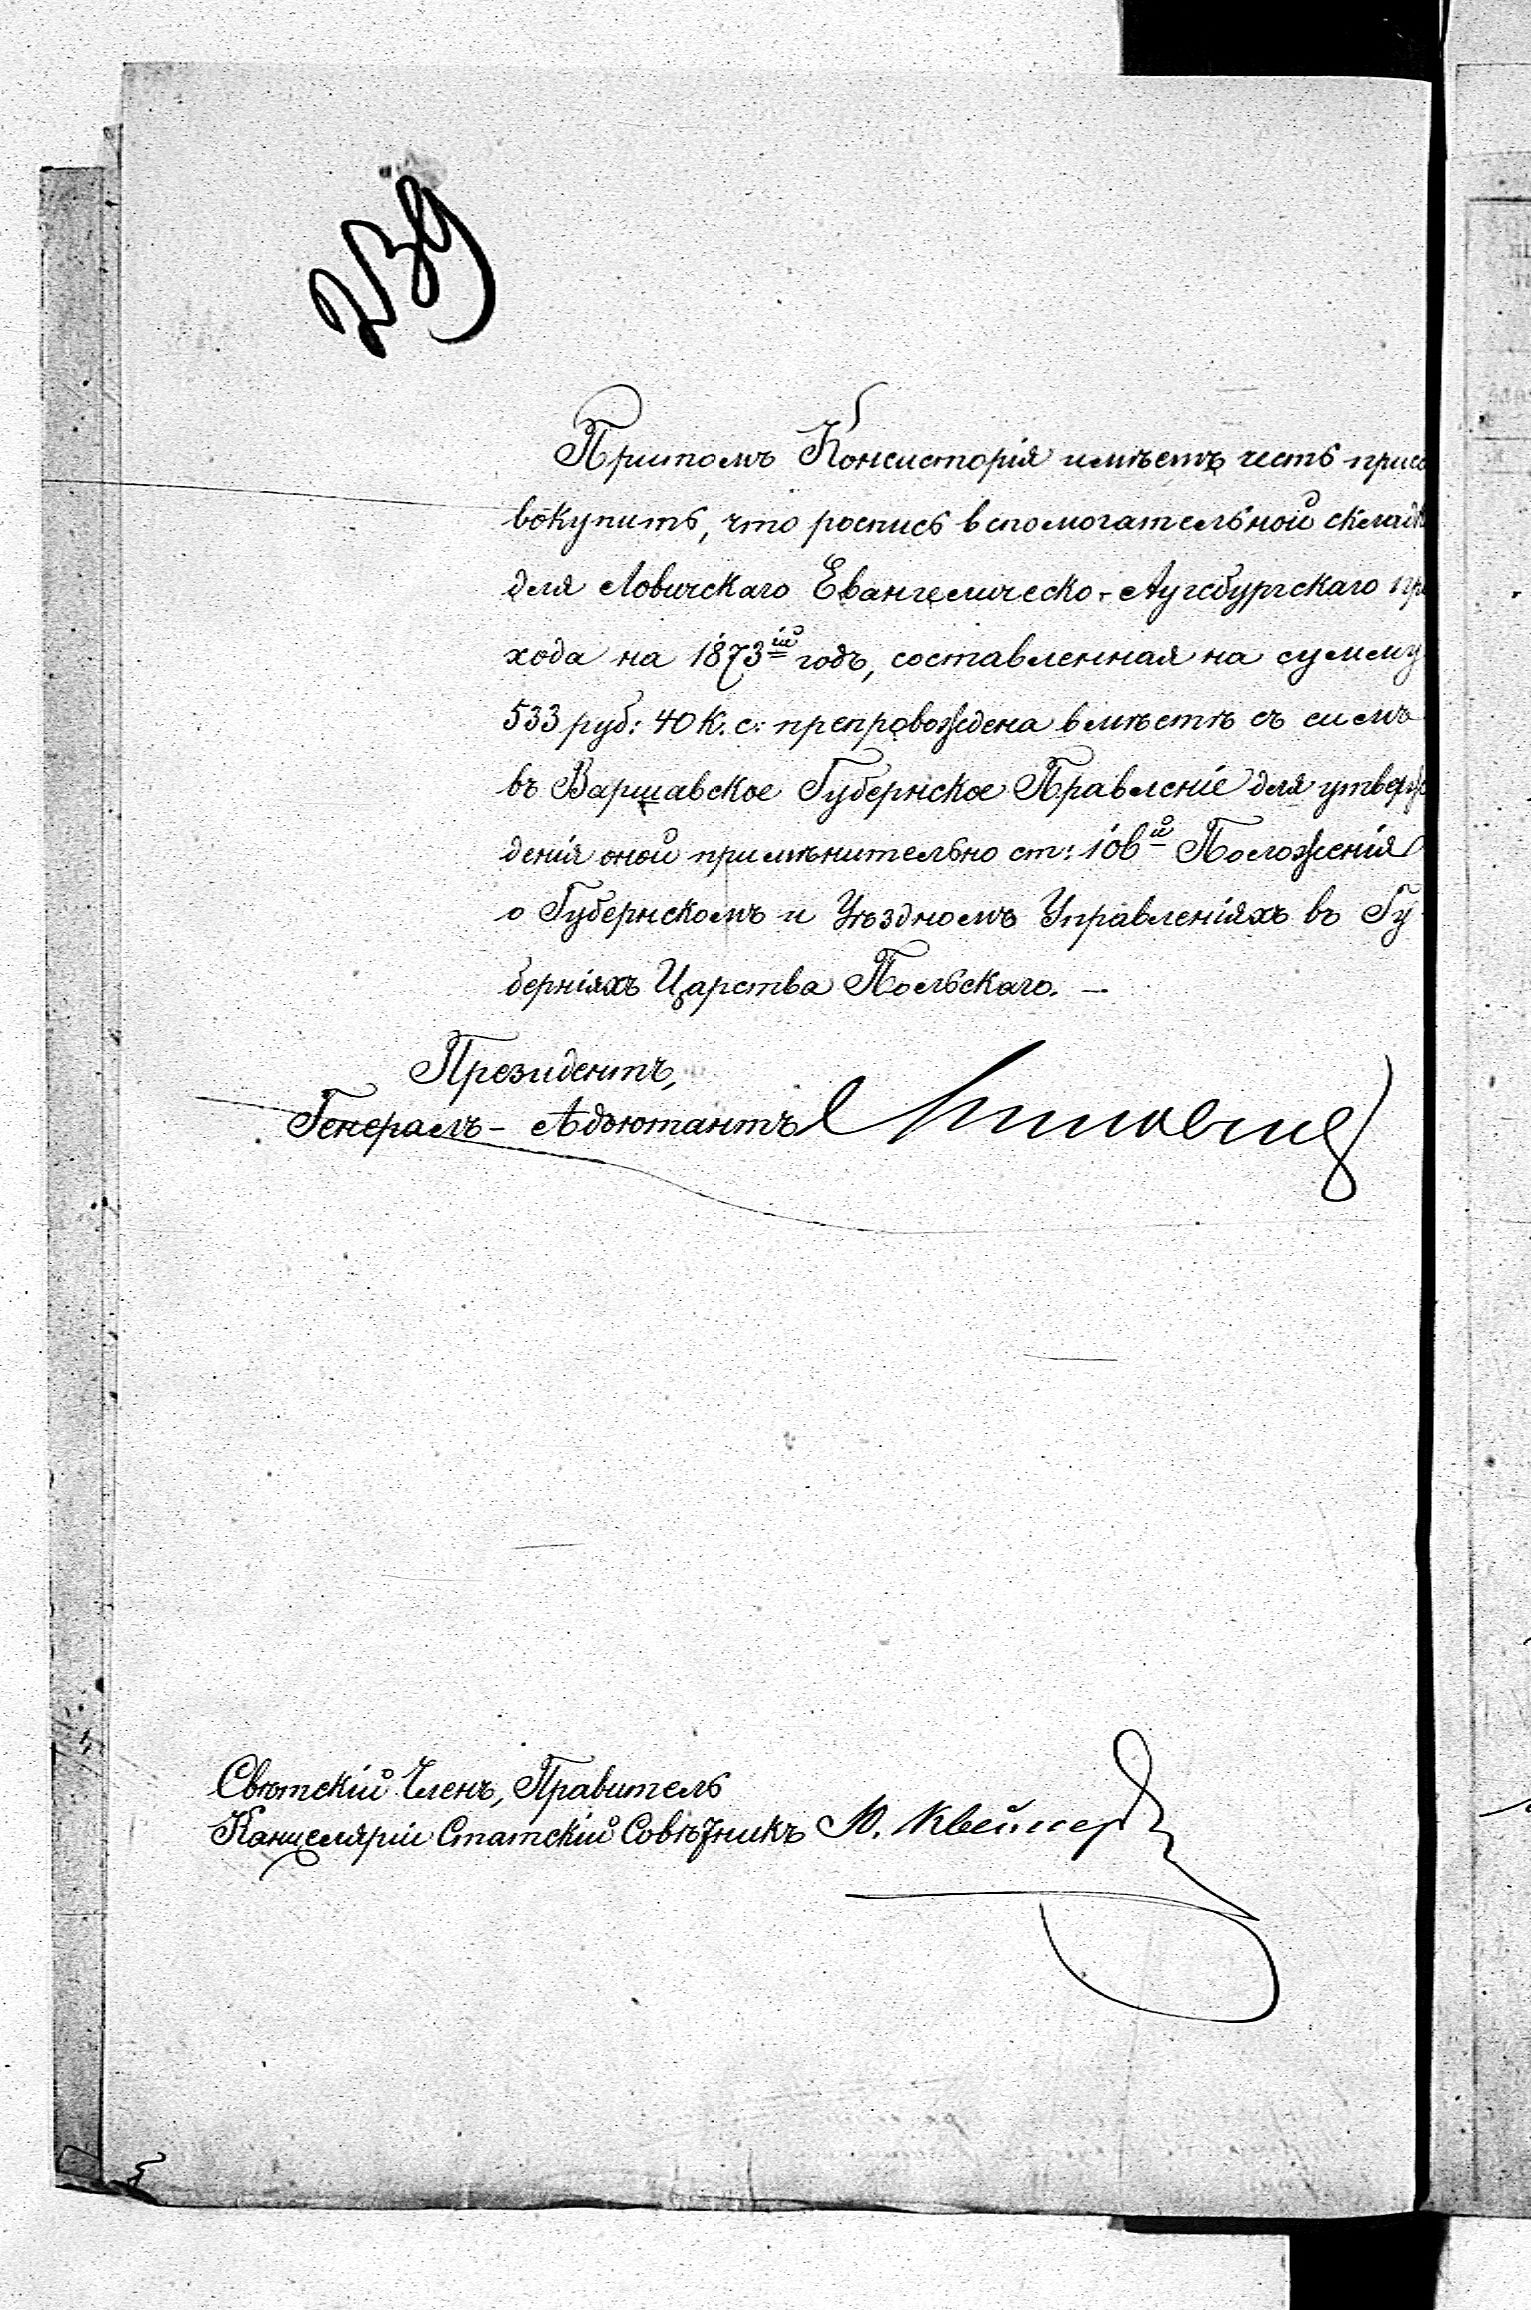 239
Притомъ Консисторія имѣетъ честь присо
вокупить, что роспись вспомогательной складк
для Ловичскаго Евангелическо-Аугсбургскаго пр
хода на 1873ій годъ, составленная на сумму
533 руб: 40 к. с: препровождена вмѣстѣ съ симъ
въ Варшавское Губернское Правленіе для утверж
денія оной примѣнительно ст: 106й Положенія
о Губернскомъ и Уѣздномъ Управленіяхъ въ Гу-
берніяхъ Царства Польскаго. —
Президентъ,
Генералъ-Адъютантъ
Свѣтскій Членъ, Правитель
Канцеляріи Статскій Совѣтникъ Ю.